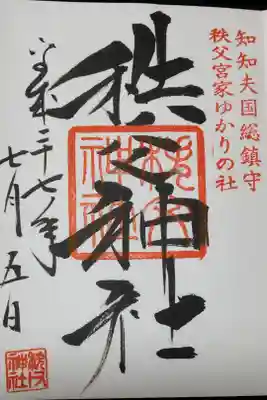 知知夫国総鎮守
秩父宮家ゆかりの社
秩父神社
平成二十七年
七月五日
秩父
神社
秩父
神社